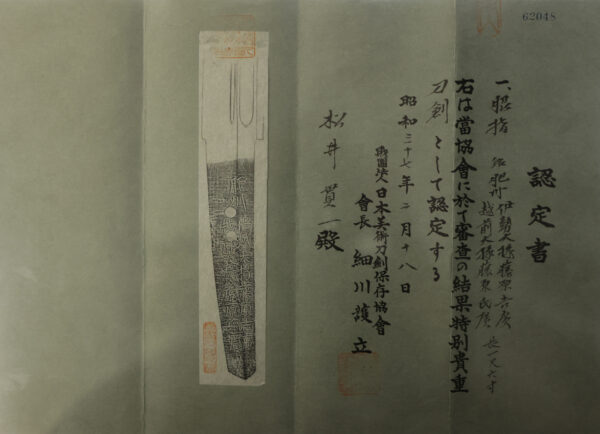 62048
認定書
一、脇指 銘 肥州 伊勢大掾藤原吉廣
越前大掾藤原氏廣 長一尺六寸
右は當協會に於て審査の結果特別貴重
刀劍として認定する
昭和三十七年二月十八日
財團法人日本美術刀劍保存協會
會長 細川護立
松井貫一殿